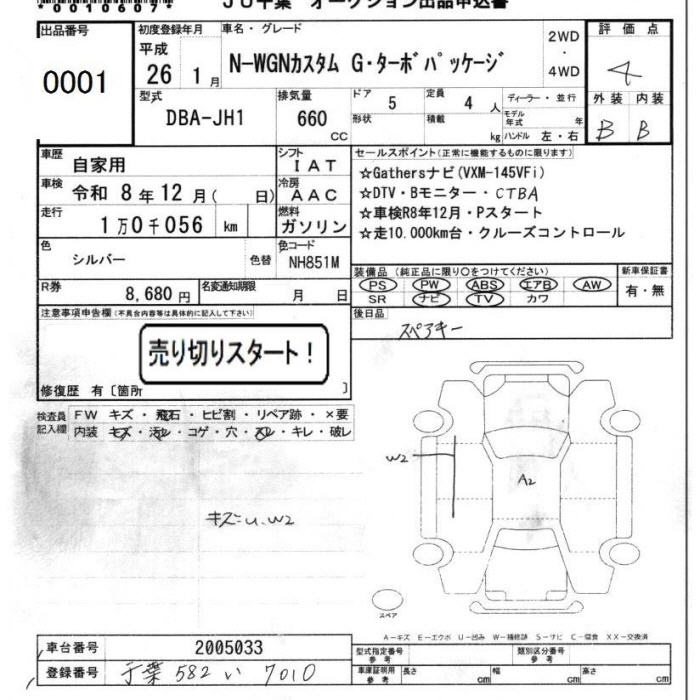 *00106077*
JU千葉 オークション出品申込書
出品番号
0001
初度登録年月
平成
26 1月
車名・グレード
N-WGNカスタム G・ターボパッケージ
2WD
・
4WD
評価点
4
外装 内装
B B
型式
DBA-JH1
排気量
660
CC
ドア 5
定員 4 人
形状
積載 kg
ディーラー・並行
モデル年式 年
ハンドル 左・右
車歴
自家用
シフト
IAT
車検
令和 8年12月( 日)
冷房
AAC
走行
1万0千056 km
燃料
ガソリン
色
シルバー
色替
色コード
NH851M
R券
8,680円
名変通知期限
月 日
セールスポイント(正常に機能するものに限ります)
☆Gathersナビ(VXM-145VFi)
☆DTV・Bモニター・CTBA
☆車検R8年12月・Pスタート
☆走10.000km台・クルーズコントロール
装備品 (純正品に限り○をつけてください)
PS PW ABS エアB AW
SR ナビ TV カワ
新車保証書
有・無
後日品
スペアキー
注意事項申告欄(不具合内容等は具体的に記入して下さい)
売り切りスタート!
修復歴 有〔箇所 〕
検査員
記入欄
FW キズ・飛石・ヒビ割・リペア跡・×要
内装 キズ・汚レ・コゲ・穴・スレ・キレ・破レ
キズ=u.w2
W2
A2
スペア
A-キズ E-エクボ U-凹み W-補修跡 S-サビ C-腐食 XX-交換済
車台番号
2005033
登録番号
千葉 582 い 7010
型式指定番号
参考
類別区分番号
参考
車庫証明用
参考
長さ cm
幅 cm
高さ cm